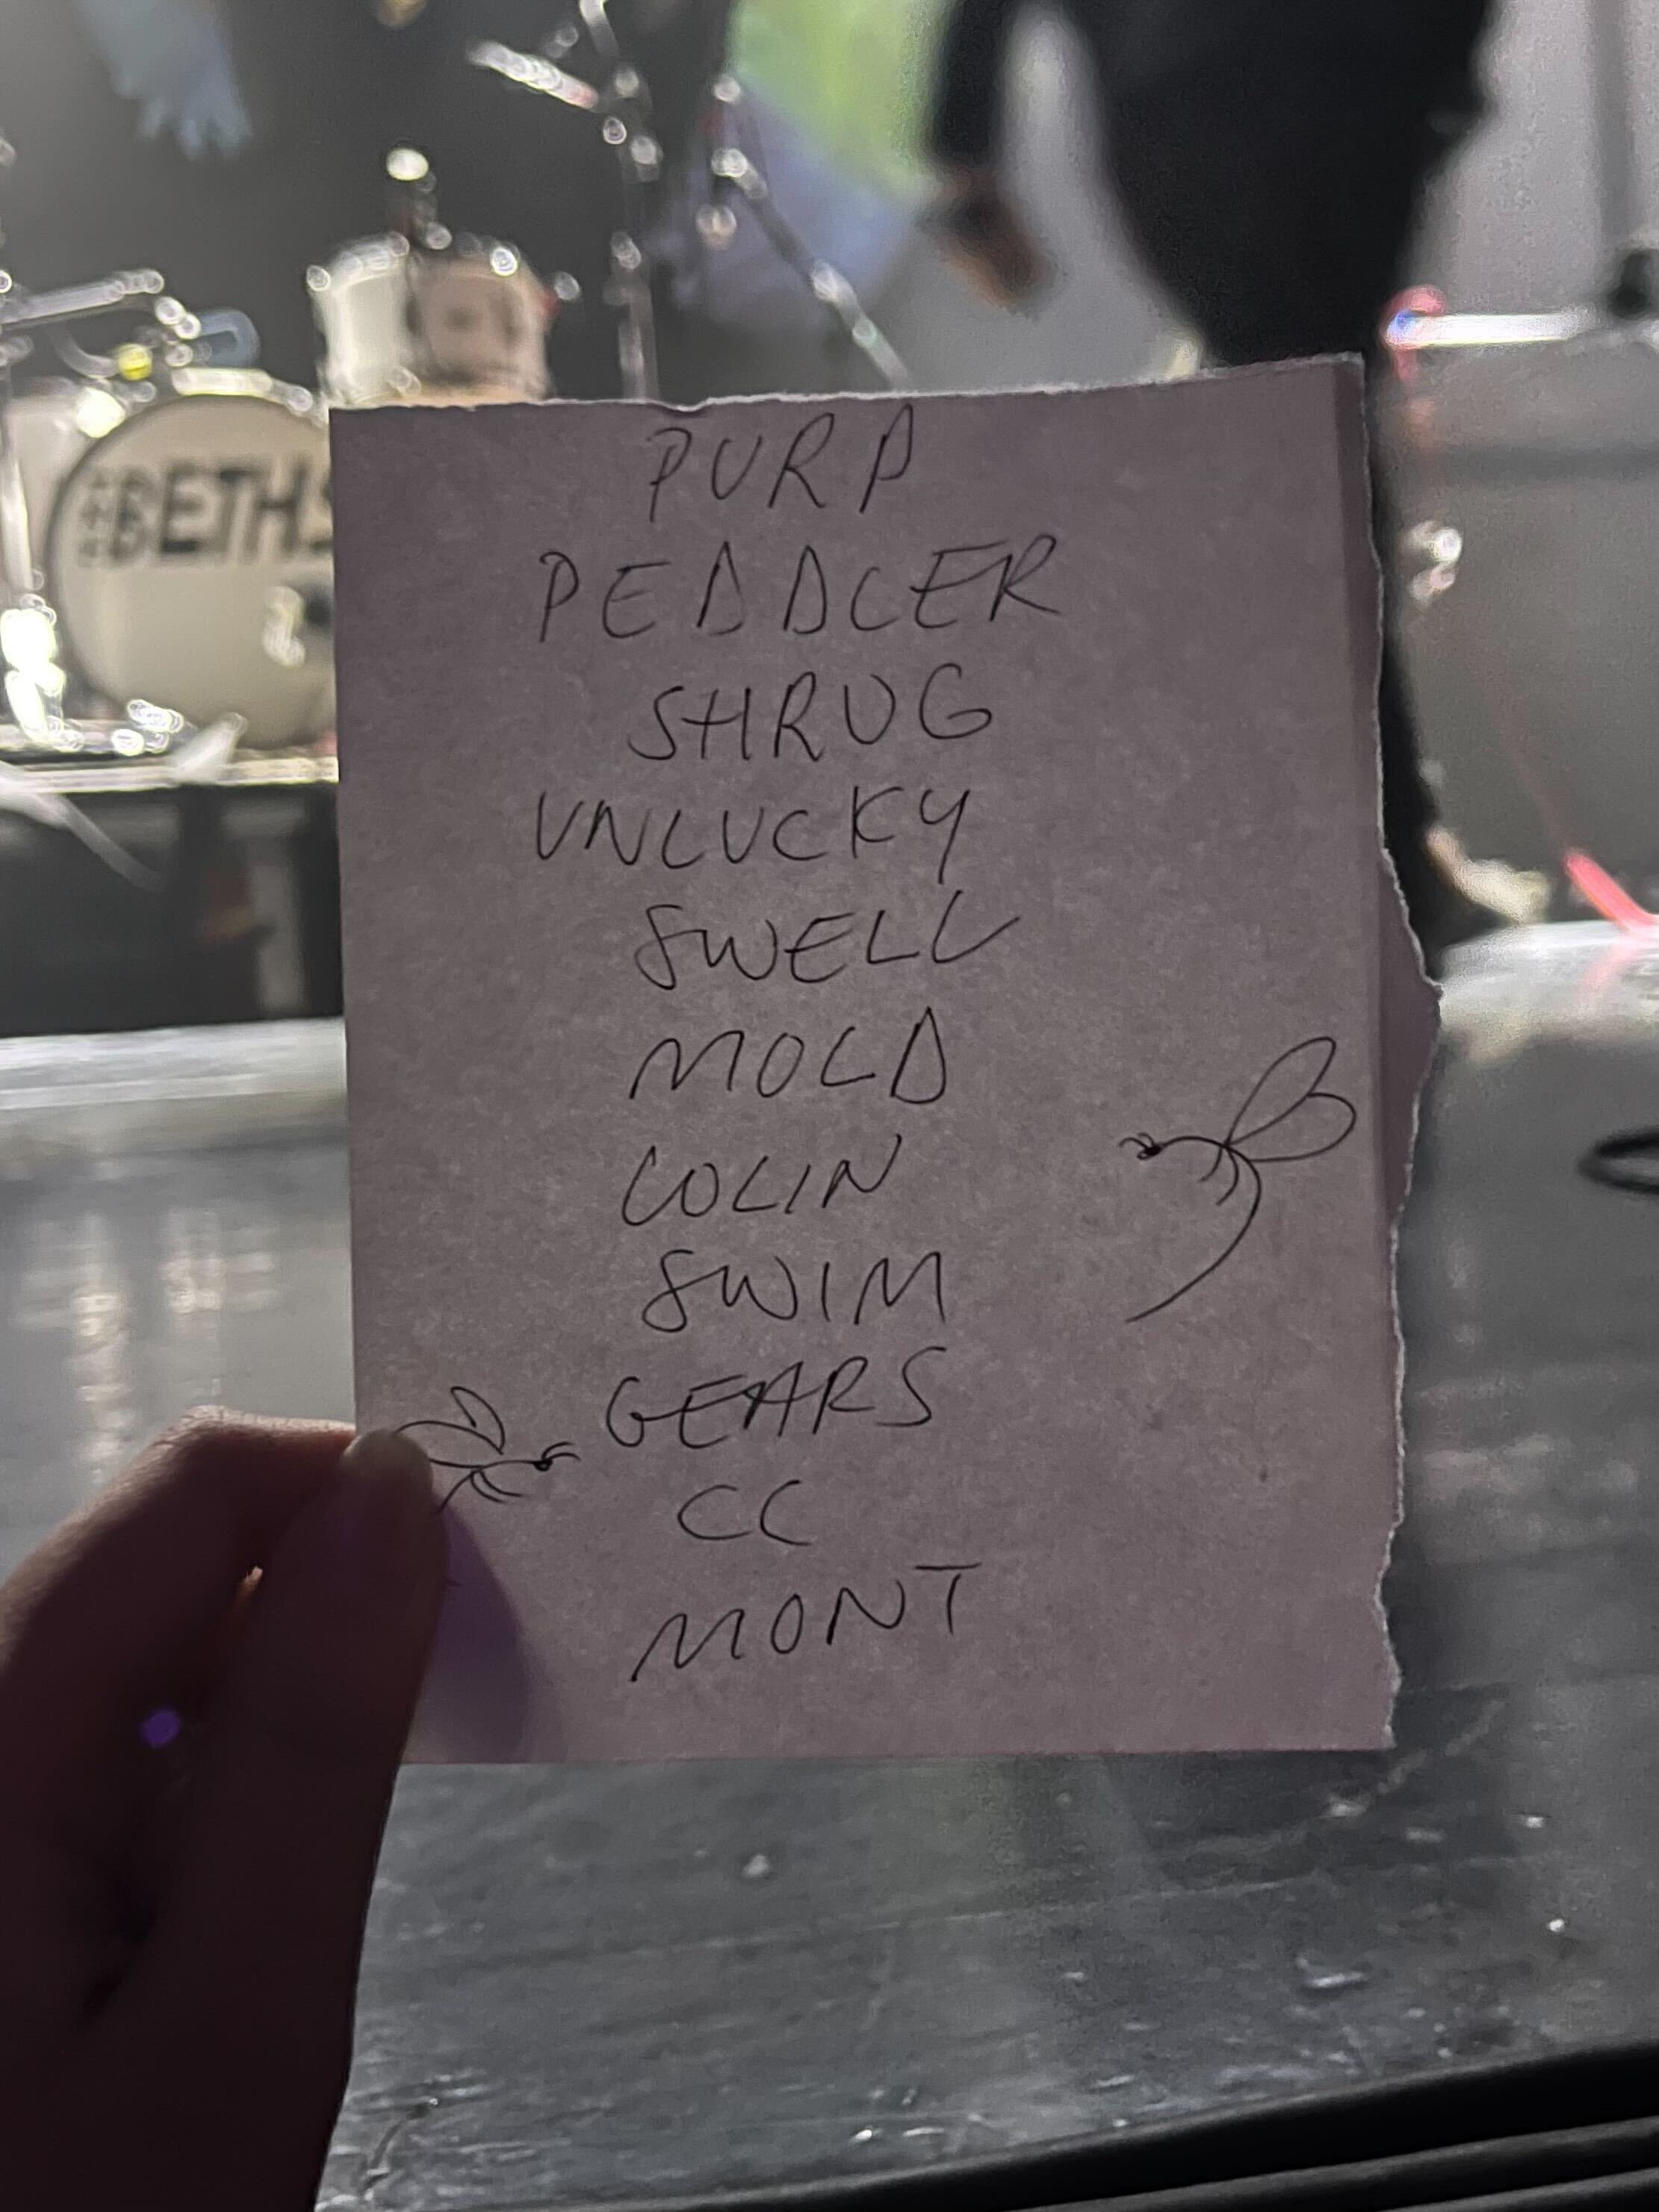 THE BETHS
PURP
PEDDLER
SHRUG
UNLUCKY
SWELL
MOLD
COLIN
SWIM
GEARS
CC
MONT